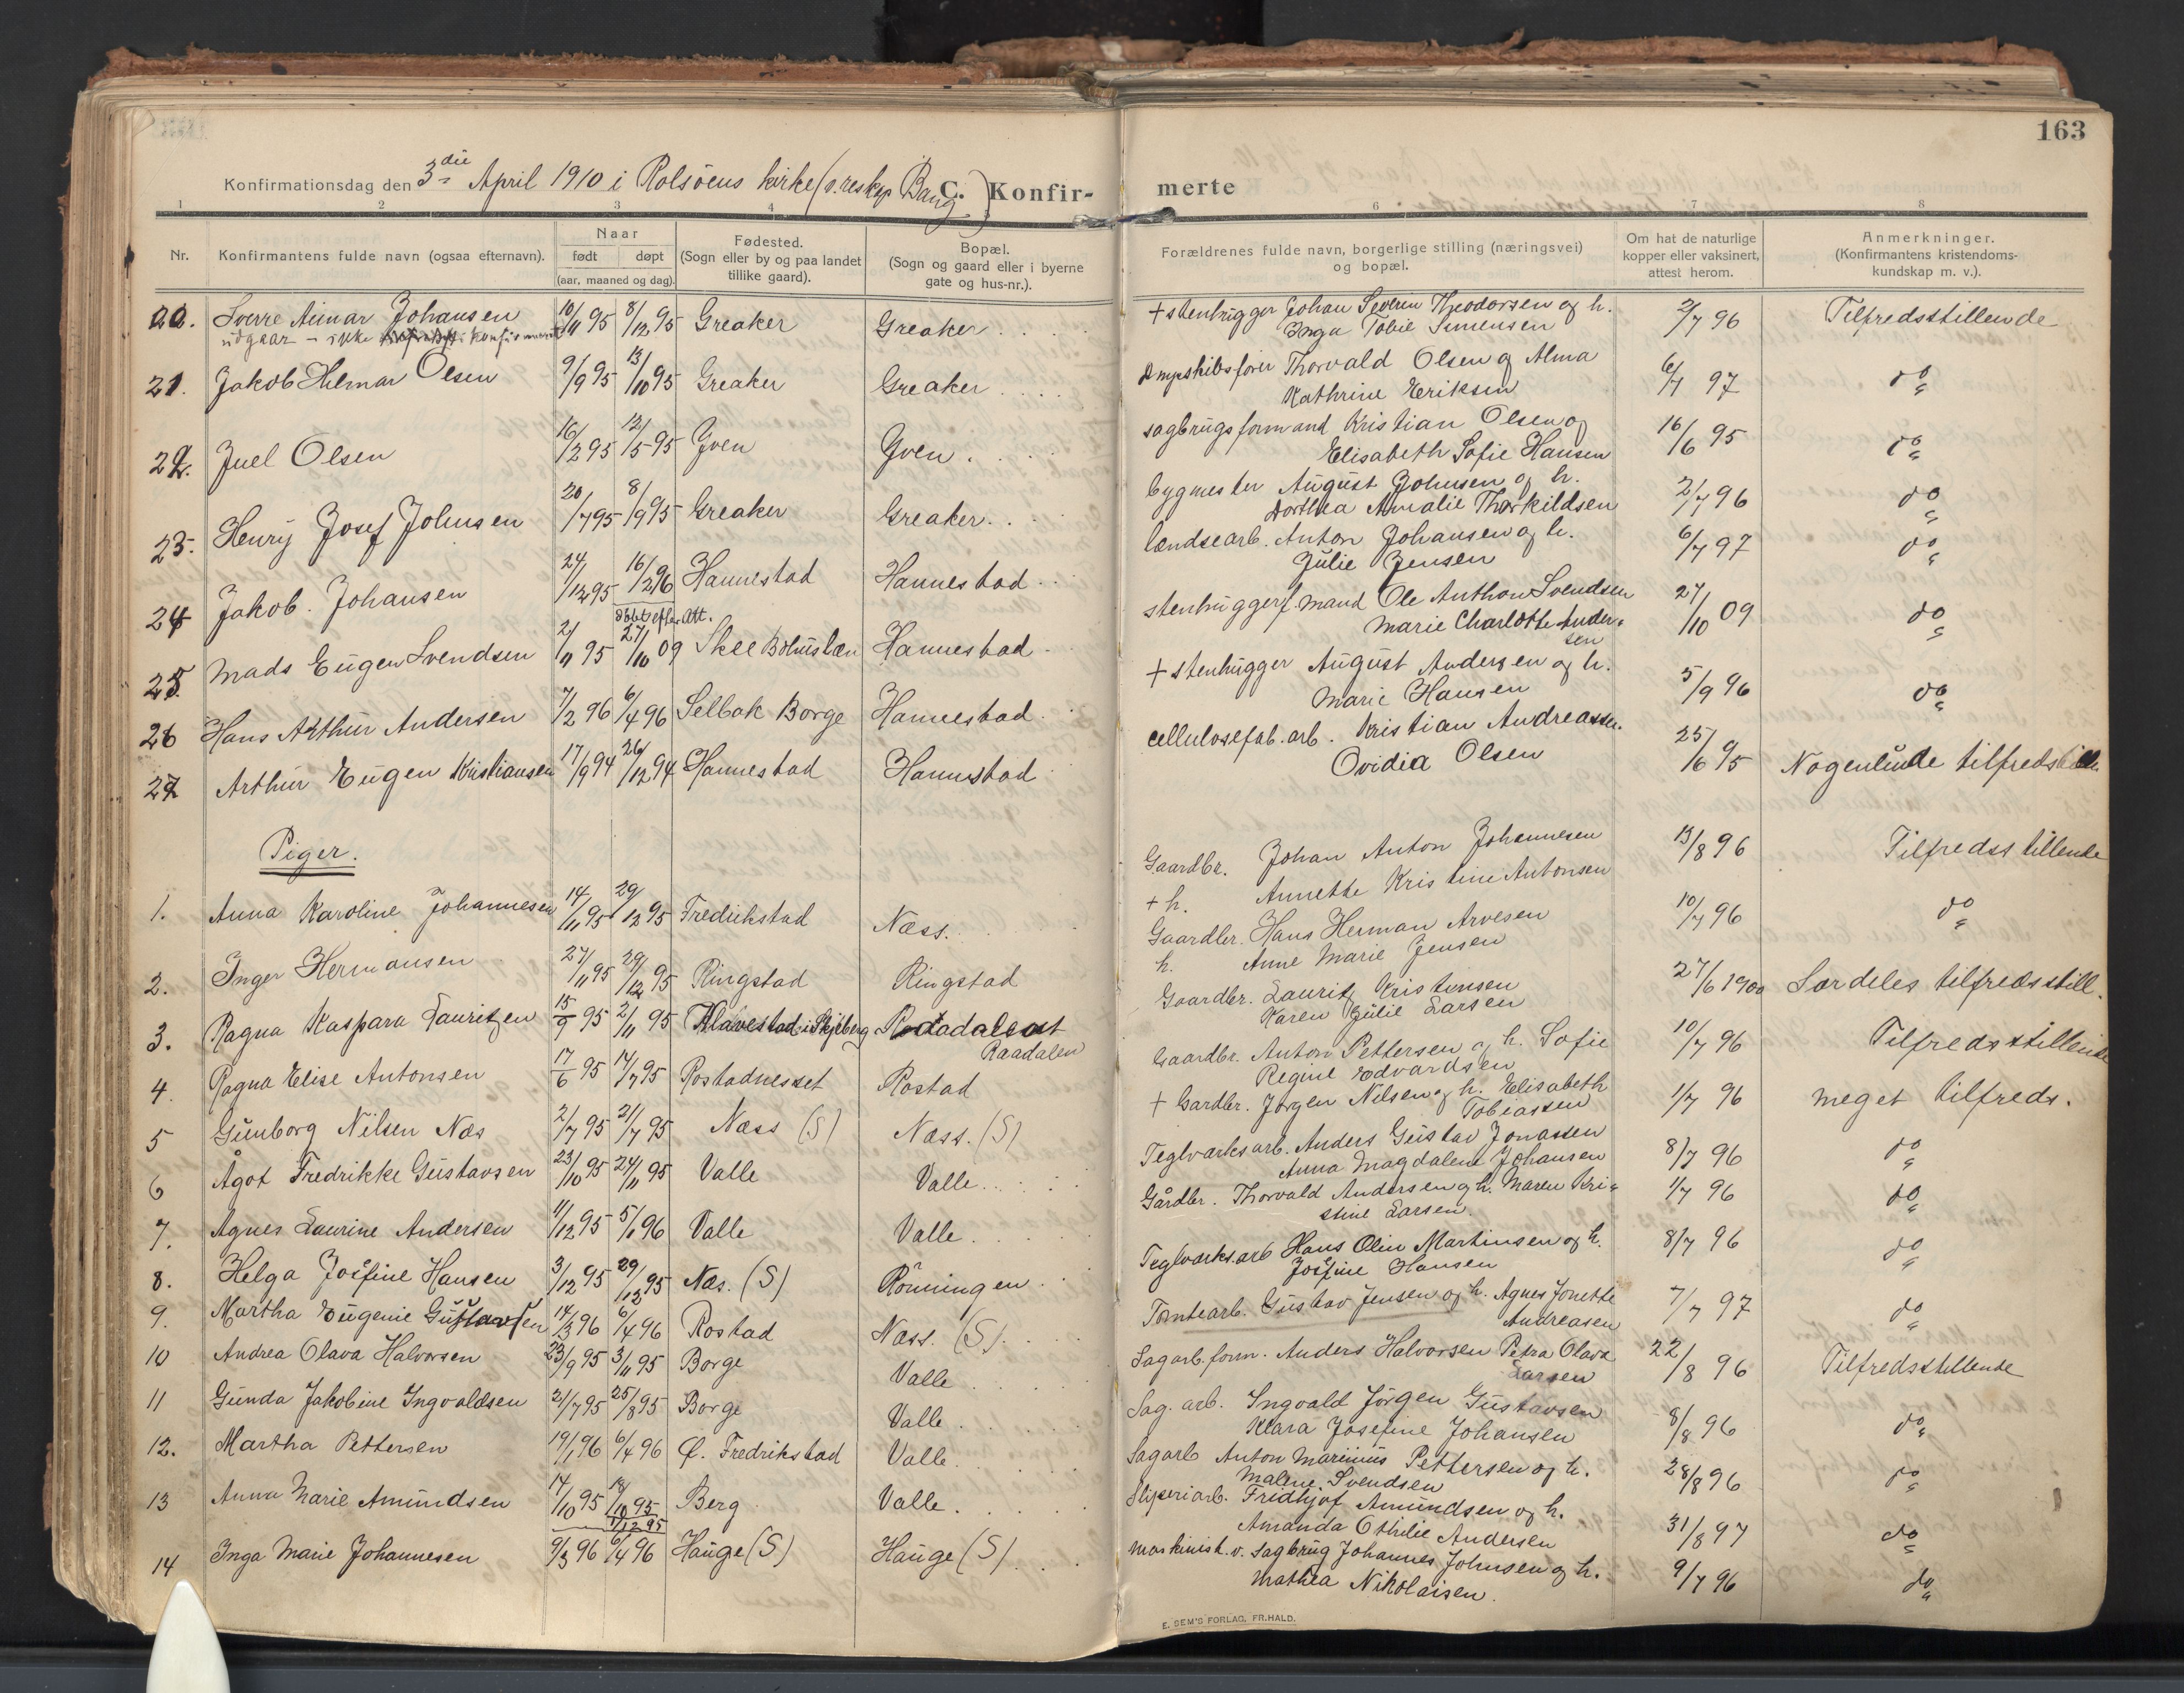 163
Konfirmationsdag den 3die April 1910 i Rolsöens kirke (v. reskap Bang) C. Konfir- merte
1 2 3 4 6 7 8
Nr. Konfirmantens fulde navn (ogsaa efternavn). Naar født døpt (aar, maaned og dag). Fødested. (Sogn eller by og paa landet tillike gaard). Bopæl. (Sogn og gaard eller i byerne gate og hus-nr.). Forældrenes fulde navn, borgerlige stilling (næringsvei) og bopæl. Om hat de naturlige kopper eller vaksinert, attest herom. Anmerkninger. (Konfirmantens kristendoms- kundskap m. v.).
20. Sverre Aimar Johansen 10/11 95 8/12 95 Greaker Greaker + stenhugger Johan Severin Theodorsen og h. 2/7 96 Tilfredsstillende
udgaar - ikke konfirmeret Inga Tobie Simensen
21. Jakob Hilmar Olsen 9/9 95 13/10 95 Greaker Greaker Dmpskibsfører Thorvald Olsen og Alma 6/7 97 do
Kathrine Eriksen
22. Juel Olsen 16/2 95 12/5 95 Yven Yven. sagbrugsformand Kristian Olsen og 16/6 95 do
Elisabeth Sofie Hansen
23. Henry Josef Johnsen 20/7 95 8/9 95 Greaker Greaker. bygmester August Johnsen og h. 2/7 96 do
Dorthea Amalie Thorkildsen
24 Jakob. Johansen 24/12 95 16/2 96 Hannestad Hannestad lændsearb. Anton Johansen og h. 6/7 97 do
Julie Jensen
døbt efter Att.
25. Mads Eugen Svendsen 2/11 95 27/10 09 Skee Bohuslæn Hannestad stenhuggerf.mand Ole Anthon Svendsen 27/10 09 do
Marie Charlotte Ander-
sen
26 Hans Arthur Andersen 7/2 96 6/4 96 Selbak Borge Hannestad + stenhugger August Andersen og h. 5/9 96 do
Marie Hansen
27 Arthur Eugen Kristiansen 17/9 94 26/12 94 Hannestad Hannestad cellulosefab. arb. Kristian Andreassen. 25/6 95 Nogenlunde tilfredstill
Ovidia Olsen
Piger.
1. Anna Karoline Johannesen 14/11 95 29/12 95 Fredrikstad Næss. Gaardbr. Johan Anton Johannesen 13/8 96 Tilfredsstillende
+ h. Annette Kristine Antonsen
2. Inger Hermansen 27/11 95 29/12 95 Ringstad Ringstad Gaardbr. Hans Herman Arvesen 10/7 96 do
h. Anne Marie Jensen
3. Ragna Kaspara Lauritzen 15/9 95 2/11 95 Havestad i Skjeberg Raadalen Gaardbr. Lauritz Kristensen 27/6 1900 Særdeles tilfredsstill.
Karen Julie Larsen
4. Ragna Elise Antonsen 17/6 95 14/7 95 Rostadnesset Rostad Gaardbr. Anton Pettersen og h. Sofie 10/7 96 Tilfredsstillende
Regine Edvardsen
5 Gunborg Nilsen Næs 2/7 95 21/7 95 Næss (S) Næss. (S) + Gardbr. Jørgen Nilsen og h. Elisabeth 1/7 96 meget tilfreds.
Tobiassen
6 Ågot Fredrikke Gustavsen 23/10 95 24/11 95 Valle Valle Teglværksarb. Anders Gustav Jonassen 8/7 96 do
Anna Magdalene Johansen
7. Agnes Laurine Andersen 11/12 95 5/1 96 Valle Valle Gårdbr. Thorvald Andersen og h. Maren Kri- 1/7 96 do
stine Larsen.
8. Helga Josefine Hansen 3/12 95 29/12 95 Næs. (S) Rönningen Teglværks.arb Hans Olin Martinsen og h. 8/7 96 do
Josefine Hansen
9. Martha Eugenie Gustavsen 14/3 96 6/4 96 Rostad Næss. (S) Tomtearb. Gustav Jensen og h. Agnes Jonette 7/7 97 do
Andreasen
10 Andrea Olava Halvorsen 23/9 95 3/11 95 Borge Valle Sagarb.form. Anders Halvorsen Petra Olava 22/8 96 Tilfredsstillende
Larsen
11 Gunda Jakobine Ingvaldsen 21/7 95 25/8 95 Borge Valle Sag. arb. Ingvald Jørgen Gustavsen 8/8 96 do
Klara Josefine Johansen
12. Martha Pettersen 19/1 96 6/4 96 Ø. Fredrikstad Valle Sagarb Anton Marinius Pettersen og h. 28/8 96 do
Maline Svendsen
13 Anna Marie Amundsen 14/10 95 1/12 95 Berg Valle Sliperiarb. Fridhjof Amundsen og h. 31/8 97 do
Amanda Othilie Andersen
14 Inga Marie Johannesen 9/3 96 6/4 96 Hauge (S) Hauge (S) Maskinist. v. Sagbrug Johannes Johnsen og h. 9/7 96 do
Mathea Nikolaisen.
E. SEM'S FORLAG, FR.HALD.